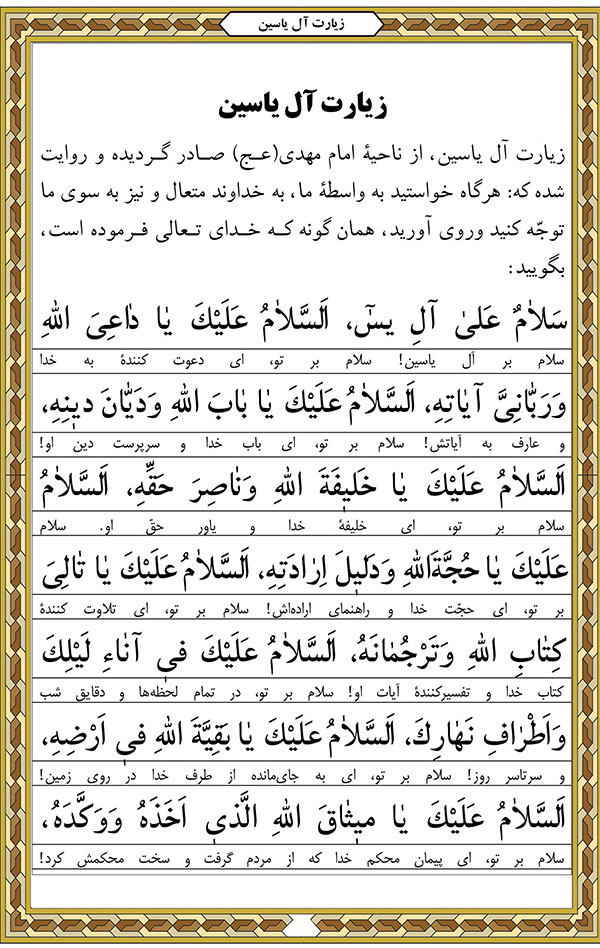 زیارت آل یاسین
زیارت آل یاسین
زیارت آل یاسین، از ناحیهٔ امام مهدی(عـج) صـادر گـردیده و روایت
شده که: هرگاه خواستید به واسطهٔ ما، به خداوند متعال و نیز به سوی ما
توجّه کنید وروی آورید، همان گونه کـه خـدای تـعالی فـرموده است،
بگویید:
سَلاٰمٌ عَلیٰ آلِ یسٓ، اَلسَّلاٰمُ عَلَیْكَ یٰا دٰاعِیَ اللهِ
سلام بر آل یاسین! سلام بر تو، ای دعوت کنندهٔ به خدا
وَرَبّٰانِیَّ آیٰاتِهِ، اَلسَّلاٰمُ عَلَیْكَ یٰا بٰابَ اللهِ وَدَیّٰانَ دینِهِ،
و عارف به آیاتش! سلام بر تو، ای باب خدا و سرپرست دین او!
اَلسَّلاٰمُ عَلَیْكَ یٰا خَلیفَةَ اللهِ وَنٰاصِرَ حَقِّهِ، اَلسَّلاٰمُ
سلام بر تو، ای خلیفهٔ خدا و یاور حقّ او. سلام
عَلَیْكَ یٰا حُجَّةَاللهِ وَدَلیلَ اِرٰادَتِهِ، اَلسَّلاٰمُ عَلَیْكَ یٰا تٰالِیَ
بر تو، ای حجّت خدا و راهنمای اراده‌اش! سلام بر تو، ای تلاوت کنندهٔ
کِتٰابِ اللهِ وَتَرْجُمٰانَهُ، اَلسَّلاٰمُ عَلَیْكَ فی آنٰاءِ لَیْلِكَ
کتاب خدا و تفسیرکنندهٔ آیات او! سلام بر تو، در تمام لحظه‌ها و دقایق شب
وَاَطْرٰافِ نَهٰارِكَ، اَلسَّلاٰمُ عَلَیْكَ یٰا بَقِیَّةَ اللهِ فی اَرْضِهِ،
و سرتاسر روز! سلام بر تو، ای به جای‌مانده از طرف خدا در روی زمین!
اَلسَّلاٰمُ عَلَیْكَ یٰا میثٰاقَ اللهِ الَّذی اَخَذَهُ وَوَکَّدَهُ،
سلام بر تو، ای پیمان محکم خدا که از مردم گرفت و سخت محکمش کرد!